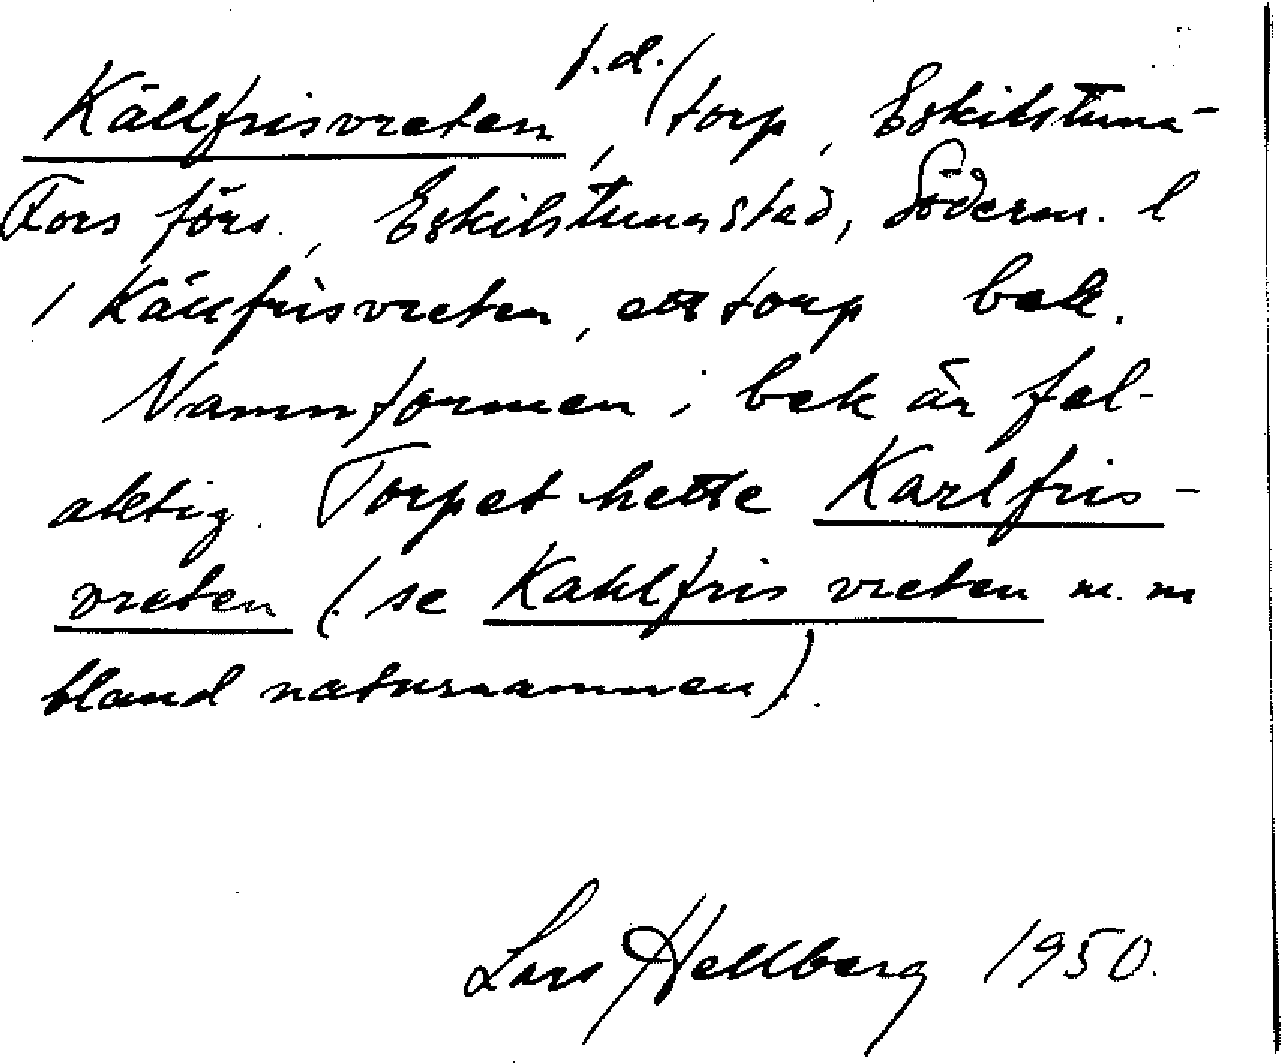 Källfrisvreten, f.d. torp, Eskilstuna-
Fors förs., Eskilstuna stad, Söderm. l
/ Källfrisvreten, ett torp bek.
Namnformen i bek är fel-
aktig. Torpet hette Karlfris-
vreten (se Kahlfris vreten m.m
bland naturnamnen).
Lars Hellberg 1950.